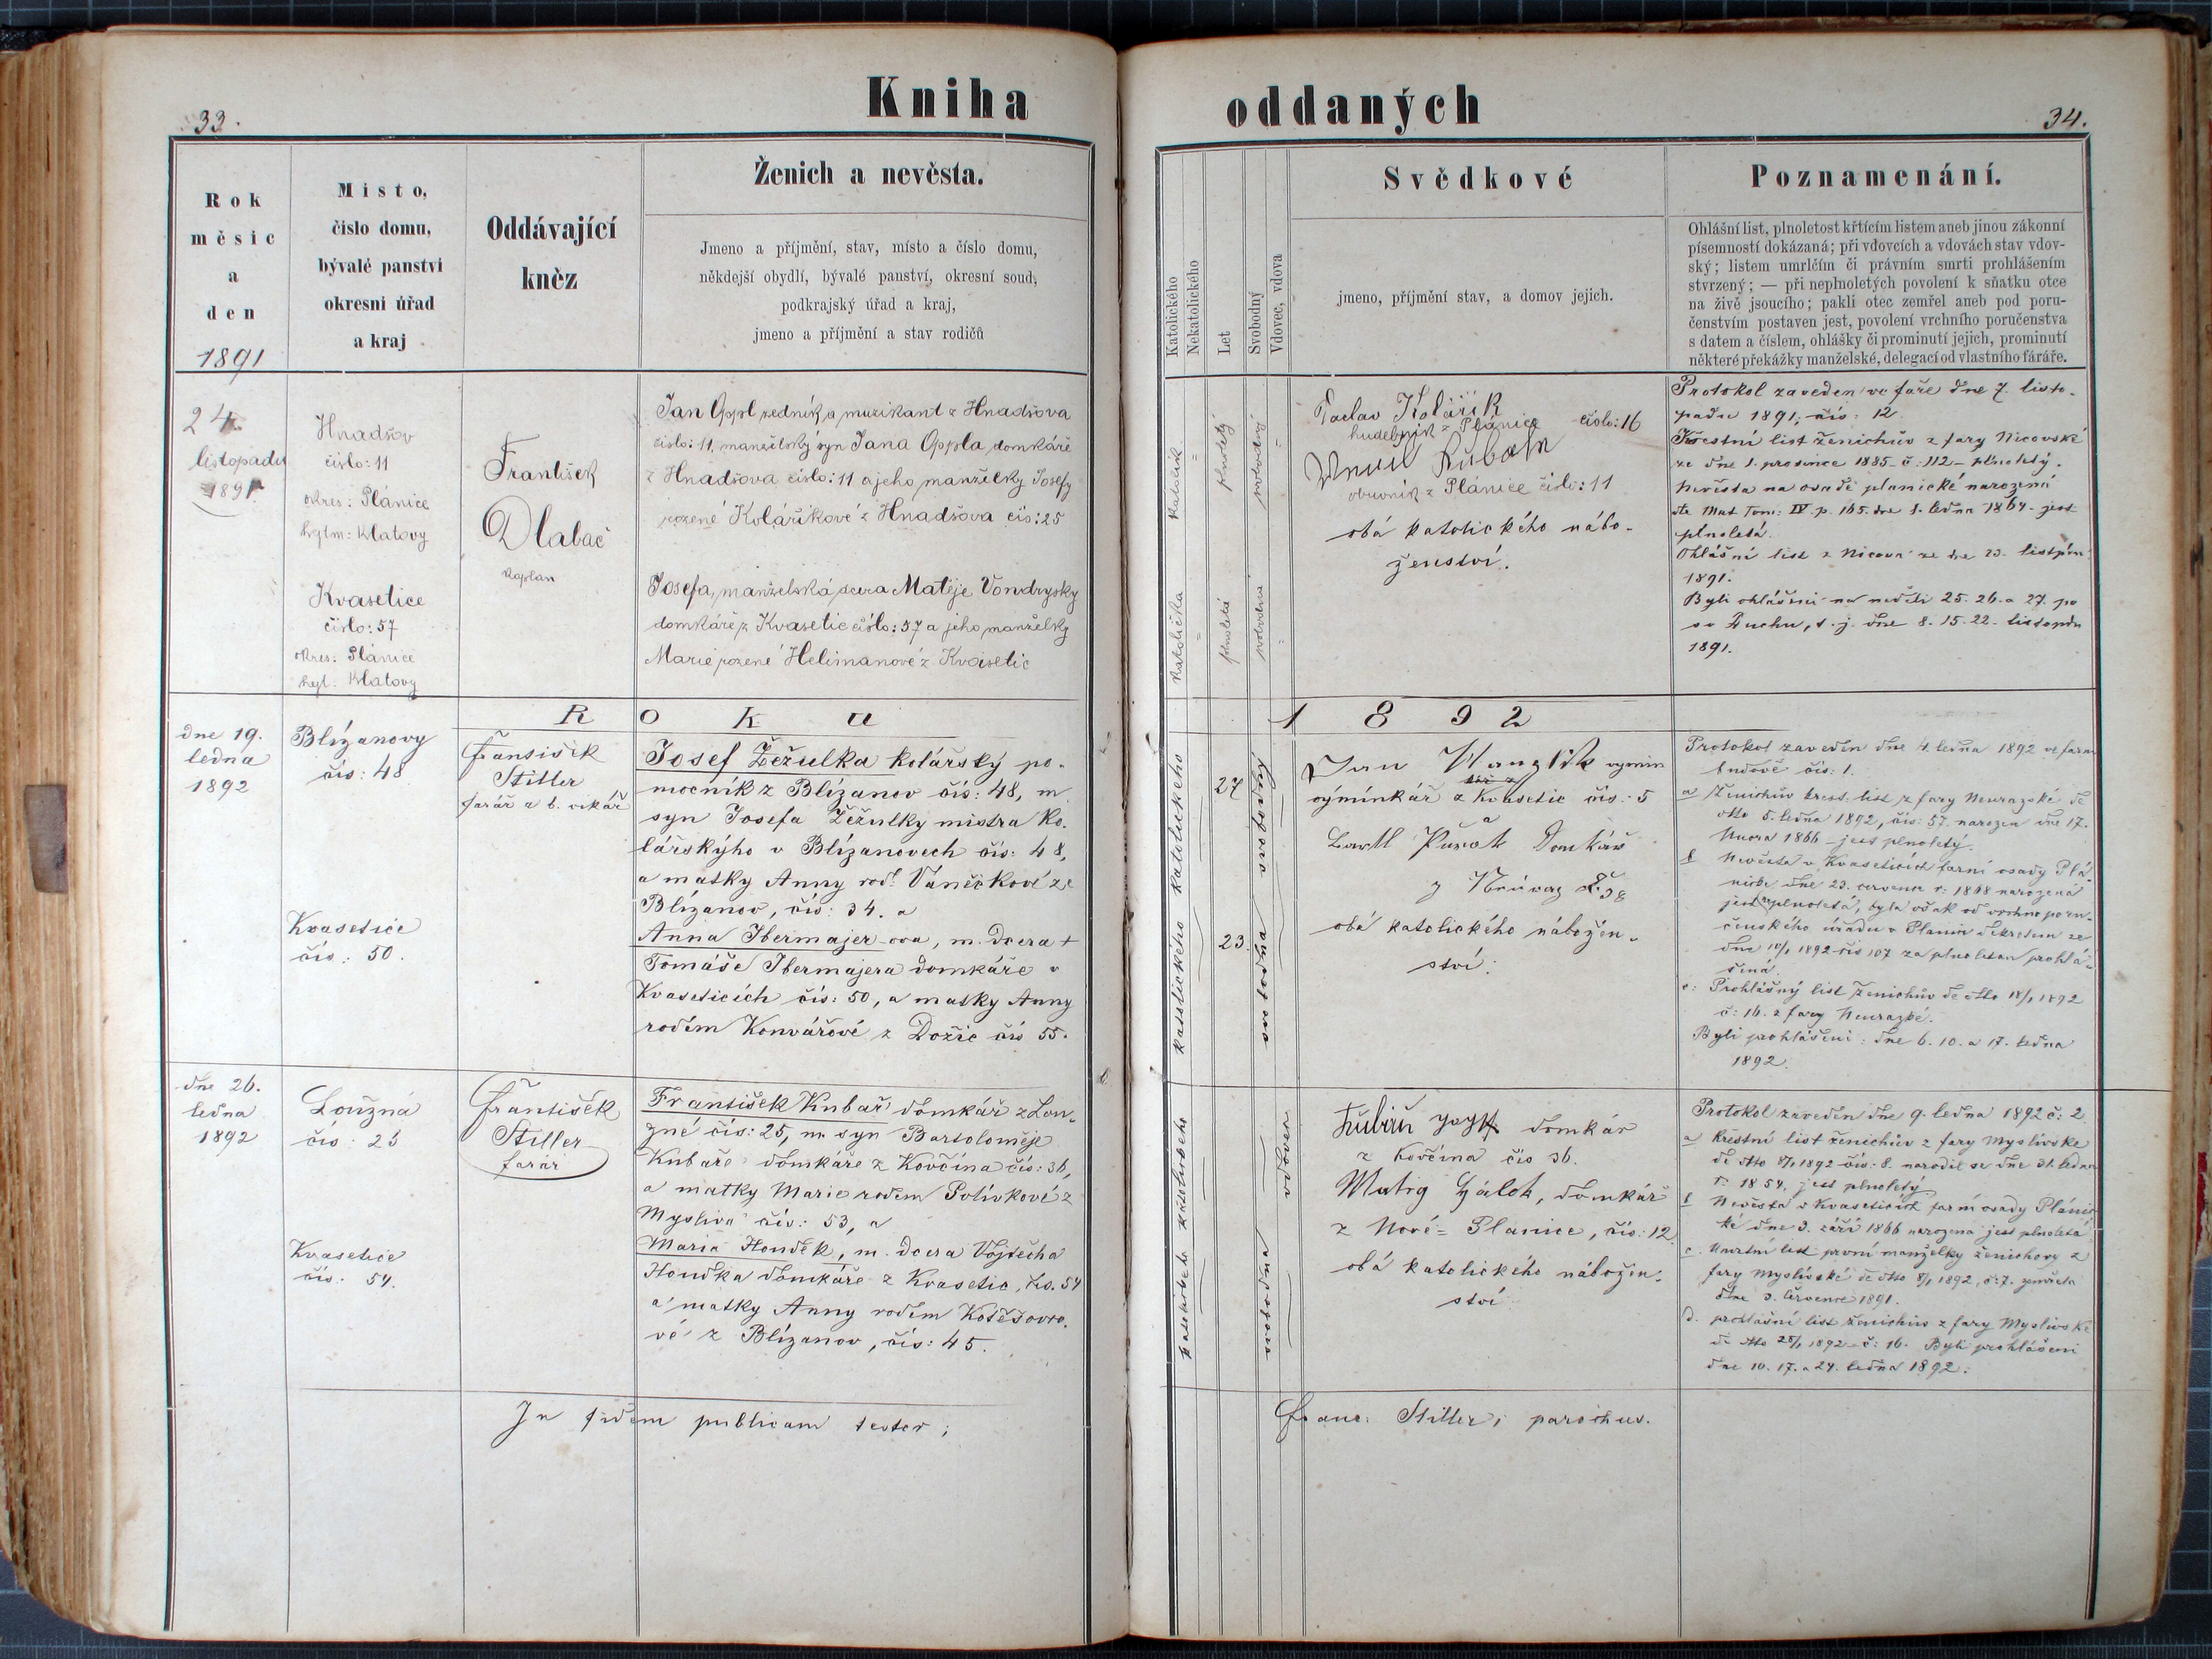 Kniha oddaných
33.
34.
Rok
měsic
a
den
1891
Misto,
čislo domu,
bývalé panstvi
okresni úřad
a kraj
Oddávající
kněz
Ženich a nevěsta.
Jmeno a příjmění, stav, místo a číslo domu,
někdejší obydlí, bývalé panství, okresní soud,
podkrajský úřad a kraj,
jmeno a příjmění a stav rodičů
Katolického
Nekatolického
Let
Svobodný
Vdovec, vdova
Svědkové
jmeno, příjmění stav, a domov jejich.
Poznamenání.
Ohlášní list, plnoletost křtícím listem aneb jinou zákonní
písemností dokázaná; při vdovcích a vdovách stav vdov-
ský; listem umrlčím či právním smrti prohlášením
stvrzený; — při neplnoletých povolení k sňatku otce
na živě jsoucího; pakli otec zemřel aneb pod poru-
čenstvím postaven jest, povolení vrchního poručenstva
s datem a číslem, ohlášky či prominutí jejich, prominutí
některé překážky manželské, delegací od vlastního fáráře.
24.
listopadu
1891
Hnadšov
čislo: 11
okres: Plánice
hejtm: Klatovy
František
Dlabač
kaplan
Jan Oppl zedník a muzikant z Hnadšova
čislo: 11, manželský syn Jana Oppla domkáře
z Hnadšova čislo: 11 a jeho manželky Josefy
rozené Kolářikové z Hnadšova čís: 25
Kvasetice
čislo: 57
okres: Plánice
hejt: Klatovy
Josefa, manželská dcera Matěje Vondrysky
domkáře z Kvasetic čislo: 57 a jeho manželky
Marie rozené Helimanové z Kvasetic
katolík
plnoletý
svobodný
katolička
plnoletá
svobodná
Václav Kolářik
hudebník z Plánice čislo: 16
obuvník z Plánice čislo: 11
obá katolického nábo-
ženství.
Protokol zaveden ve faře dne 7. listo-
padu 1891, čís: 12
Křestní list ženichův z fary Nicovské
ze dne 1. prosince 1885 č: 112 – plnoletý.
Nevěsta na osadě planické narozená
dle Mat. Tom: IV. p. 165. dne 1. ledna 1864 – jest
plnoletá.
Ohlášní list z Nicova ze dne 23. listpdu
1891.
Byli ohlášeni na neděli 25. 26. a 27. po
sv Duchu, t. j. dne 8. 15. 22. listopdu
1891.
Roka 1892
dne 19.
ledna
1892
Blízanovy
čís: 48
František
Stiller
farář a b. vikář
Josef Žežulka kolářský po-
mocník z Blízanov čís: 48, m
syn Josefa Žežulky mistra ko-
lářskýho v Blízanovech čís: 48,
a matky Anny rod. Vaněčkové ze
Blízanov, čís: 34. a
Kvasetice
čís: 50.
Anna Ibermajer-ova, m. dcera +
Tomáše Ibermajera domkáře v
Kvaseticích čís: 50, a matky Anny
rodem Konvářové z Dožic čís 55.
katolického
27
svobodný
katolického
23.
svobodná
Jan
výminkář z Kvasetic čís: 5
a
Domkář
obá katolického nábožen-
ství.
Protokol zaveden dne 4. ledna 1892 ve farní
budově čís: 1.
a Ženichův křest. list z fary Neurazské de
dtto 5. ledna 1892, čís: 57. narozen dne 17.
února 1866 – jest plnoletý.
b Nevěsta v Kvaseticích farní osady Plá-
nické dne 23. července r: 1868 narozená
jest neplnoletá, byla však od vrchno poru-
čenského úřadu v Plánici dekretem ze
dne 10/1 1892 čís 107 za plnoletou prohlá-
šená.
c: Prohlášný list ženichův de dtto 18/1 1892
č: 16. z fary Neurazké.
Byli prohlášeni: dne 6. 10. a 17. ledna
1892.
dne 26.
ledna
1892
Loužná
čís: 25
František
Stiller
farář
František Kubař domkář z Lou-
žné čís: 25, m. syn Bartoloměje
Kubaře domkáře z Kovčína čís: 36,
a matky Marie rodem Polívkové z
Mysliva čís: 53, a
Kvasetice
čís: 54.
Maria Houdek, m. dcera Vojtěcha
Houdka domkáře z Kvasetic, čís. 54
a matky Anny rodem Kotěšovco-
vé z Blízanov, čís: 45.
katolického
vdovec
katolického
svobodná
domkář
z Kovčína čís 36.
domkář
z Nové-Planice, čís: 12.
obá katolického nábožen-
ství.
Protokol zaveden dne 9. ledna 1892 č: 2
a křestní list ženichův z fary Myslivské
de dtto 8/1 1892 čís: 8. narodil se dne 31. ledna
r: 1854, jest plnoletý
b Nevěsta v Kvaseticích farní osady Plánic-
ké dne 3. září 1866 narozena jest plnoletá
c. Úmrtní list první manželky ženichovy z
fary Myslivské de dtto 8/1 1892, č: 7. zemřela
dne 3. července 1891.
d. prohlášní list ženichův z fary Myslivské
de dtto 25/1 1892 – č: 16. Byli prohlášeni
dne 10. 17. a 24. ledna 1892.
In fidem publicam testor; Franc: Stiller; parochus.